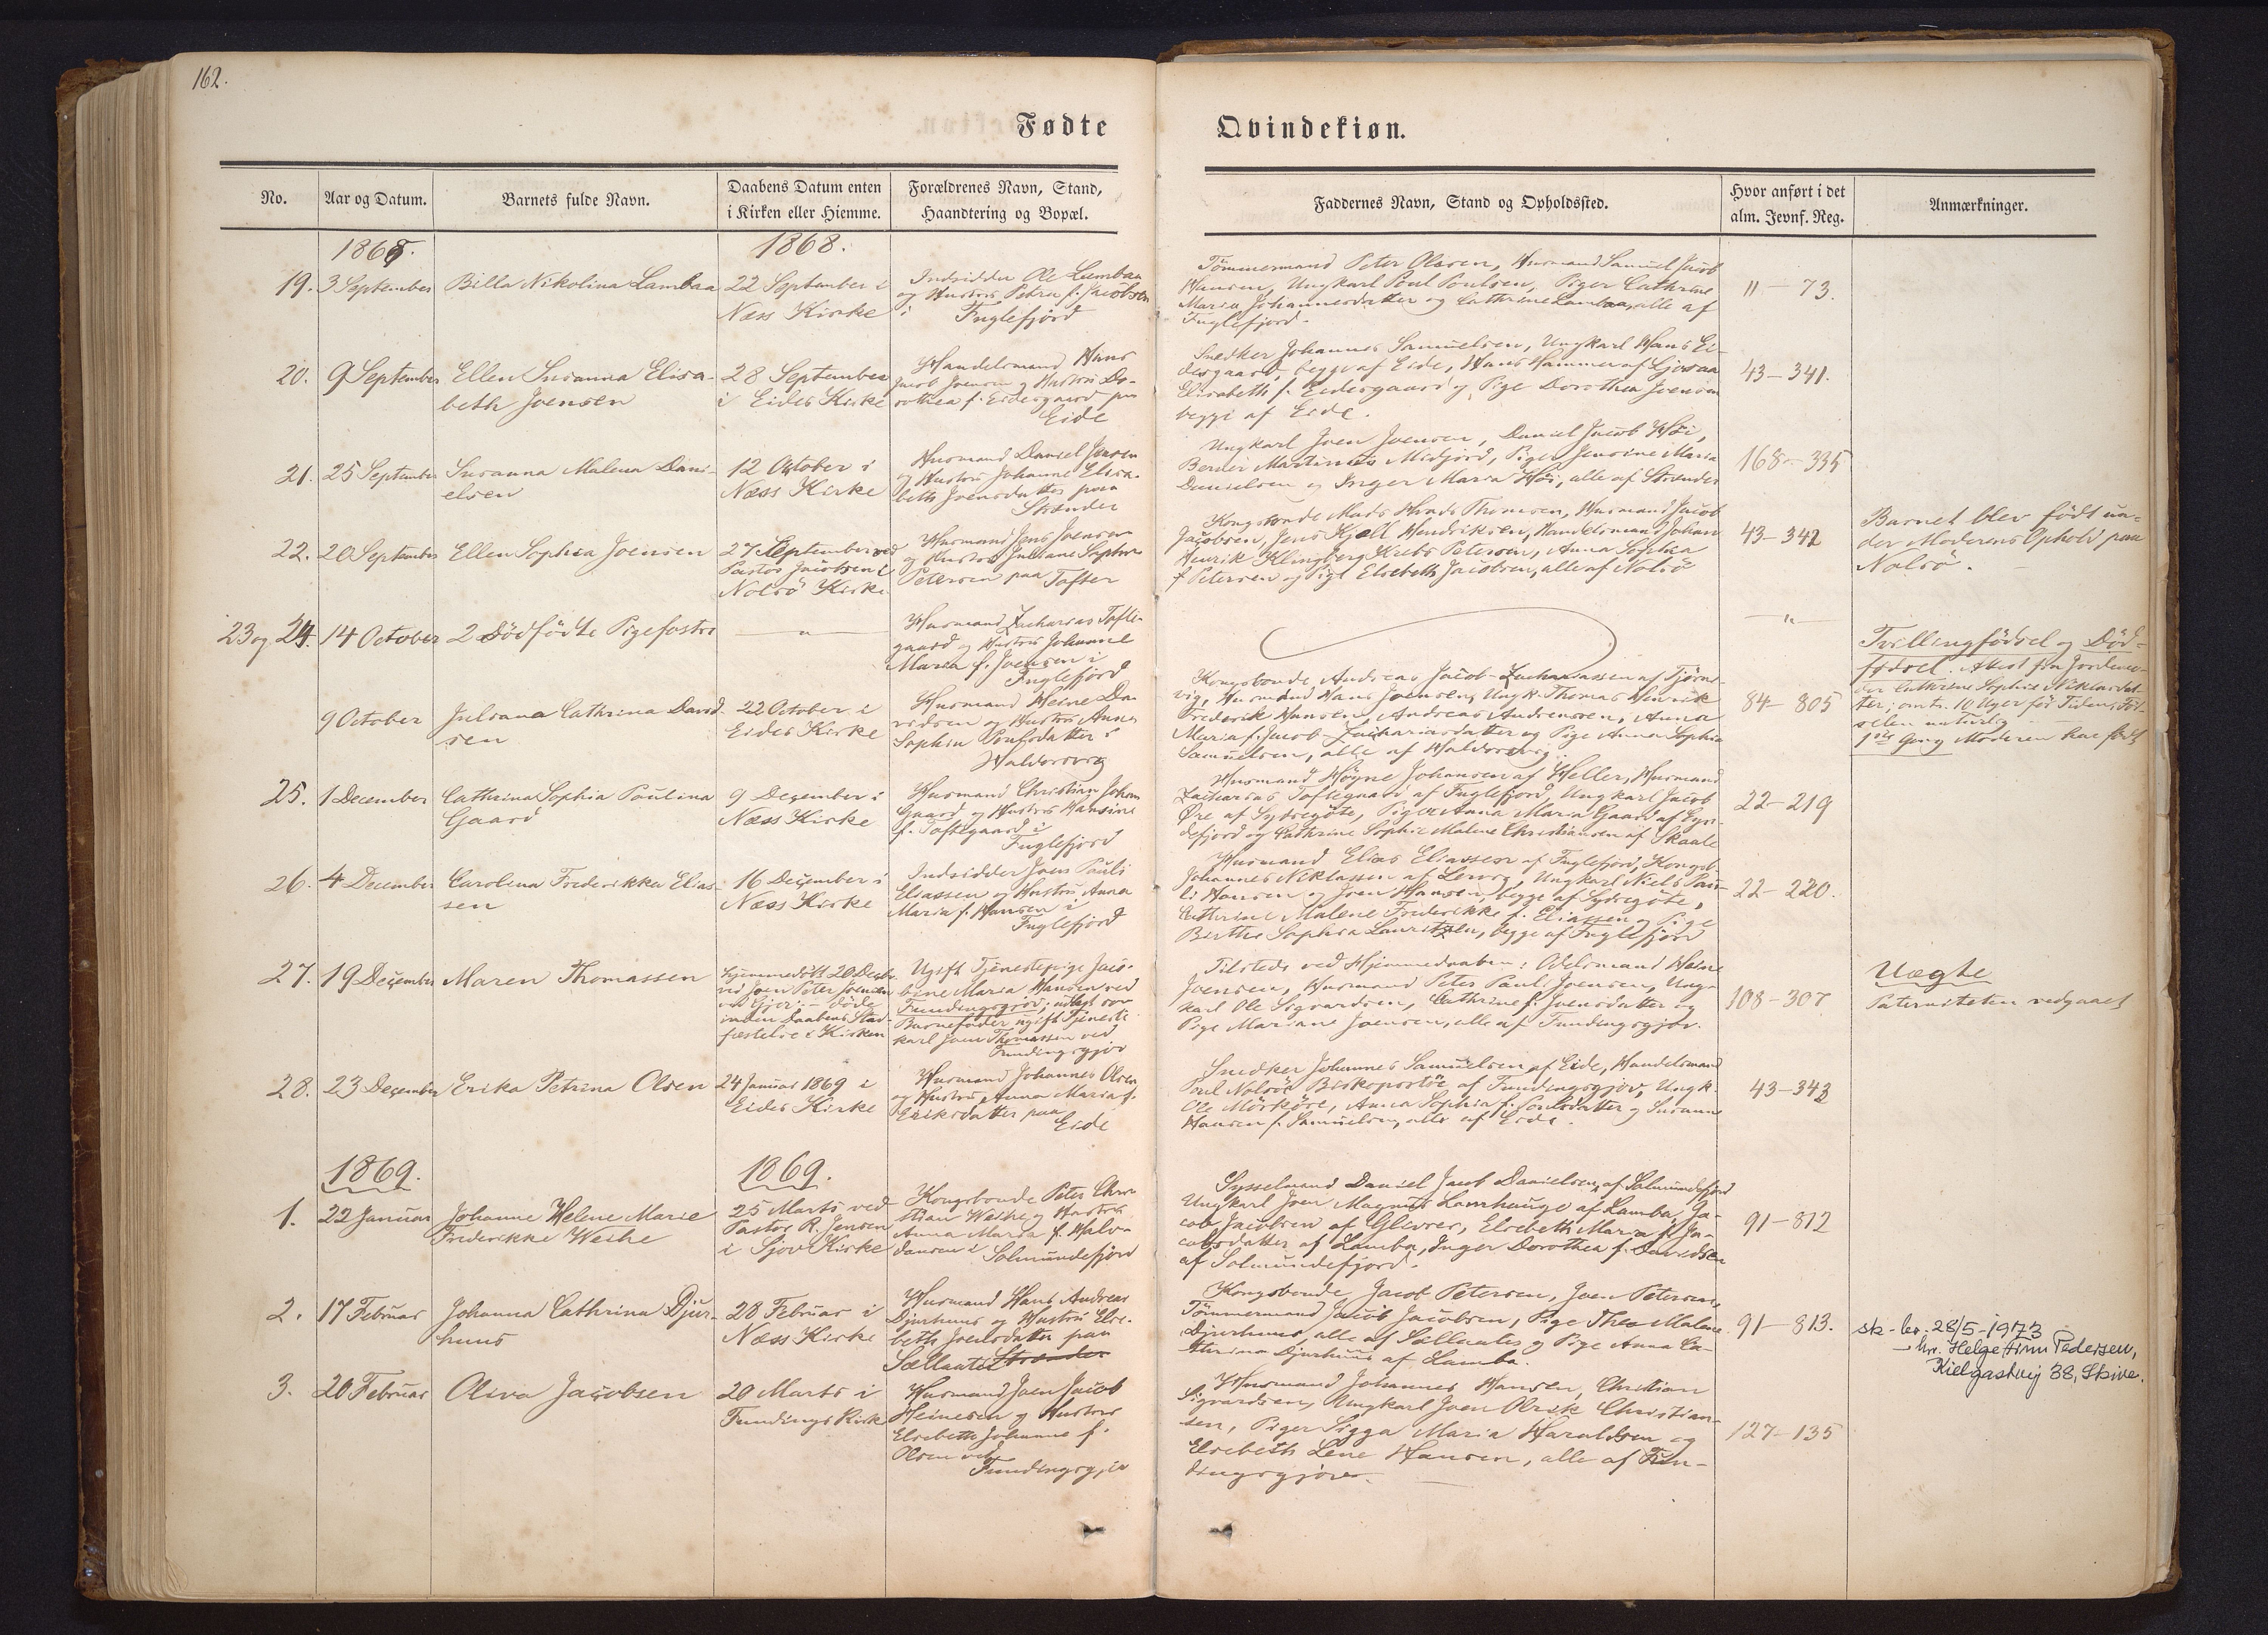 162.
Fødte
Qvindekiøn.
No.
Aar og Datum.
Barnets fulde Navn.
Daabens Datum enten
i Kirken eller Hiemme.
Forældrenes Navn, Stand,
Haandtering og Bopæl.
Faddernes Navn, Stand og Opholdssted.
Hvor anført i det
alm. Jevnf. Reg.
Anmærkninger.
1868.
1868.
19.
3 September
Billa Nikolina Lambaa
22 September i
Næs Kirke
Indsidder Ole Lambaa
og Hustru Petra f. Jacobsen
i Fuglefjord
Tömmermand Peter Olesen, Husmand Samuel Jacob
Hansen, Ungkarl Poul Poulsen, Piger Cathrine
Maria Johannesdatter og Cathrine Lambaa, alle af
Fuglefjord.
11-73.
20.
9 September
Ellen Susanna Elisa-
beth Joensen
28 September
i Eides Kirke
Handelsmand Hans
Jacob Joensen og Hustru Do-
rothea f. Eidesgaard paa
Eide
Snedker Johannes Samuelsen, Ungkarl Hans Ei-
desgaard, begge af Eide, Hans Hammer af Ljosaa
Elisabeth f. Eidesgaard og Pige Dorothea Joensen
begge af Eide.
43-341.
21.
25 September
Susanna Malena Dani-
elsen
12 October i
Næss Kirke
Husmand Daniel Joensen
og Hustru Johanne Elisa-
beth Joensdatter paa
Strænder
Ungkarl Joen Joensen, Daniel Jacob Höi,
Martinus Midfjord, Piger Jensine Maria
Danielsen og Inger Maria Höi, alle af Strænder
168-335
22.
20 September
Ellen Sophia Joensen
27 September ved
Pastor Jacobsen i
Nolsö Kirke
Husmand Jens Joensen
og Hustru Juliane Sophie
Petersen paa Tofter
Kongsbonde Mads Thomsen, Husmand Jacob
Jacobsen, Jens Kjell Hendriksen, Handelsmand Johan
Henrik Klingberg Krebs Petersen, Anna Sophia
f. Petersen og Pige Elsebeth Jacobsen, alle af Nolsö
43-342
Barnet blev födt un-
der Moderens Ophold paa
Nolsö.
23 og 24.
14 October
2 Dödfödte Pigefostre
— " —
Husmand Zacharias Tofte-
gaard og Hustru Johanne
Maria f. Joensen i
Fuglefjord
— " —
Tvillingfödsel og Död-
födsel. Attest fra Jordemo-
der Cathrine Sophie Niklasdat-
ter; omtr. 10 Uger för Tiden; Föd-
selen naturlig
1ste Gang Moderen har födt
9 October
Juliana Cathrina David-
sen
22 October i
Eides Kirke
Husmand Heine Da-
vidsen og Hustru Anna
Sophia Poulsdatter i
Haldorsvig
Kongsbonde Andreas Jacob Zachariassen af Tjörne-
vig, Husmand Hans Joensen, Ungk. Thomas Henrik
Frederik Hansen, Andreas Andreassen, Anna
Maria f. Jacob-Zachariasdatter og Pige Anna Sophia
Samuelsen, alle af Haldorsvig.
84-805
25.
1 December
Cathrina Sophia Paulina
Gaard
9 December i
Næss Kirke
Husmand Christian Johan
Gaard og Hustru Hansine
f. Toftegaard i
Fuglefjord
Husmand Högne Johansen af Heller, Husmand
Zacharias Toftegaard af Fuglefjord, Ungkarl Jacob
Öre af Sydregöte, Piger Anna Maria Gaard af Syn-
defjord og Cathrine Sophie Malene Christiansen af Skaale
22-219
26.
4 December
Carolina Frederikka Elias-
sen
16 December i
Næss Kirke
Indsidder Joen Pauli
Eliassen og Hustru Anna
Maria f. Hansen i
Fuglefjord
Husmand Elias Eliassen af Fuglefjord, Kongsb.
Johannes Niklassen af Lervig, Ungkarl Niels Pau-
li Hansen og Joen Hansen, begge af Sydregöte,
Cathrine Malene Frederikke f. Eliassen og Pige
Birthe Sophia Lauritzen, begge af Fuglefjord
22-220.
27.
19 December
Maren Thomassen
hjemmedöbt 20 Decbr.
ved Joen Peter Joensen
ved Gjov; — döde
inden Daabens Stad-
fæstelse i Kirken
Ugift Tjenestepige Jaco-
bine Maria Hansen ved
Fundingsgjov; udlagt som
Barnefader ugift Tjeneste-
karl Joen Thomassen ved
Fundingsgjov
Tilstede ved Hjemmedaaben: Odelsmand Heine
Joensen, Husmand Peter Paul Joensen, Ung-
karl Ole Sigvardsen, Cathrine f. Joensdatter og
Pige Mariane Joensen, alle af Fundingsgjov.
108-307
Uægte
Paterniteten vedgaaet
28.
23 December
Erika Petrina Olsen
24 Januar 1869 i
Eides Kirke
Husmand Johannes Olsen
og Hustru Anna Maria f.
Eriksdatter paa
Eide
Snedker Johannes Samuelsen af Eide, Handelsmand
Poul Nolsöe Biskopstöe af Fundingsgjov, Ungk.
Ole Mörköre, Anna Sophia f. Poulsdatter og Susanne
Hansen f. Samuelsen, alle af Eide.
43-343
1869.
1869.
1.
22 Januar
Johanne Helene Marie
Frederikke Weihe
25 Marts ved
Pastor R. Jensen
i Sjov Kirke
Kongsbonde Peter Chri-
stian Weihe og Hustru
Anna Maria f. Halv-
dansen i Solmundefjord
Sysselmand Daniel Jacob Danielsen, af Solmundefjord
Ungkarl Joen Magnus Lamhauge af Lamba, Ja-
cob Jacobsen af Glivrer, Elsebeth Maria f. Ja-
cobsdatter af Lamba, Inger Dorothea f. Davidsen
af Solmundefjord.
91-812
2.
17 Februar
Johanna Cathrina Djur-
huus
28 Februar i
Næss Kirke
Husmand Hans Andreas
Djurhuus og Hustru Else-
beth Joensdatter paa
Sællæater Strænder
Kongsbonde Jacob Petersen, Joen Petersen,
Tömmermand Jacob Jacobsen, Pige Thea Malene
Djurhuus, alle af Sællæater og Pige Anna Ca-
thrina Djurhuus af Lamba.
91-813.
sk-br. 28/5-1973
— hr. Helge Finn Pedersen,
Kielgastvej 38, Skive.
3.
20 Februar
Oliva Jacobsen
29 Marts i
Fundings Kirke
Husmand Joen Jacob
Heinesen og Hustru
Elsebeth Johanne f.
Olsen ved
Fundingsgjov
Husmand Johannes Hansen, Christian
Sigvardsen, Ungkarl Joen Christian-
sen, Piger Sigga Maria Haraldsen og
Elsebeth Lene Hansen, alle af Fun-
dingsgjov.
127-135